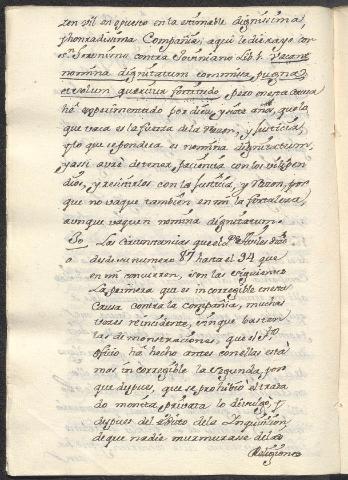 zon vil an opuesto en la estimable dignissima,
y honradissima Compañia; aqui le dixera yo con
S.n Geronimo contra Joviniano Lib. 1. Vacant
nomina dignitatum commissa pugna,
et solum quæritur fortitudo, pero en esta Causa
hè experimentado por diez, y siete años, que lo
que vaca es la fuerza de la Razon, y Justicia,
y lo que se pondera es nomina dignitatum,
y assi avrè de tener paciencia con los vilipen
dios, y resistirlos con la Justicia, y Razon, por
que no vaque tambien en mi la fortaleza,
aunque vaquen nomina dignitatum.
30. Las Circunstancias que el P.e Aviles dize
desde su numero 87 hasta el 94 que
en mi concurren, son las siguientes
La primera que es incorregible en esta
Causa contra la Compañia, muchas
vezes reincidente, sin que bastan
tas demonstraciones, que el S.to
Oficio hà hecho antes con el, as està
mas incorregible la Segunda, por
que despues, que se prohibiò el trata
do moneta privata lo divulgò, y
despues del Edicto de la Inquisicion,
de que nadie murmurasse de las
Religiones